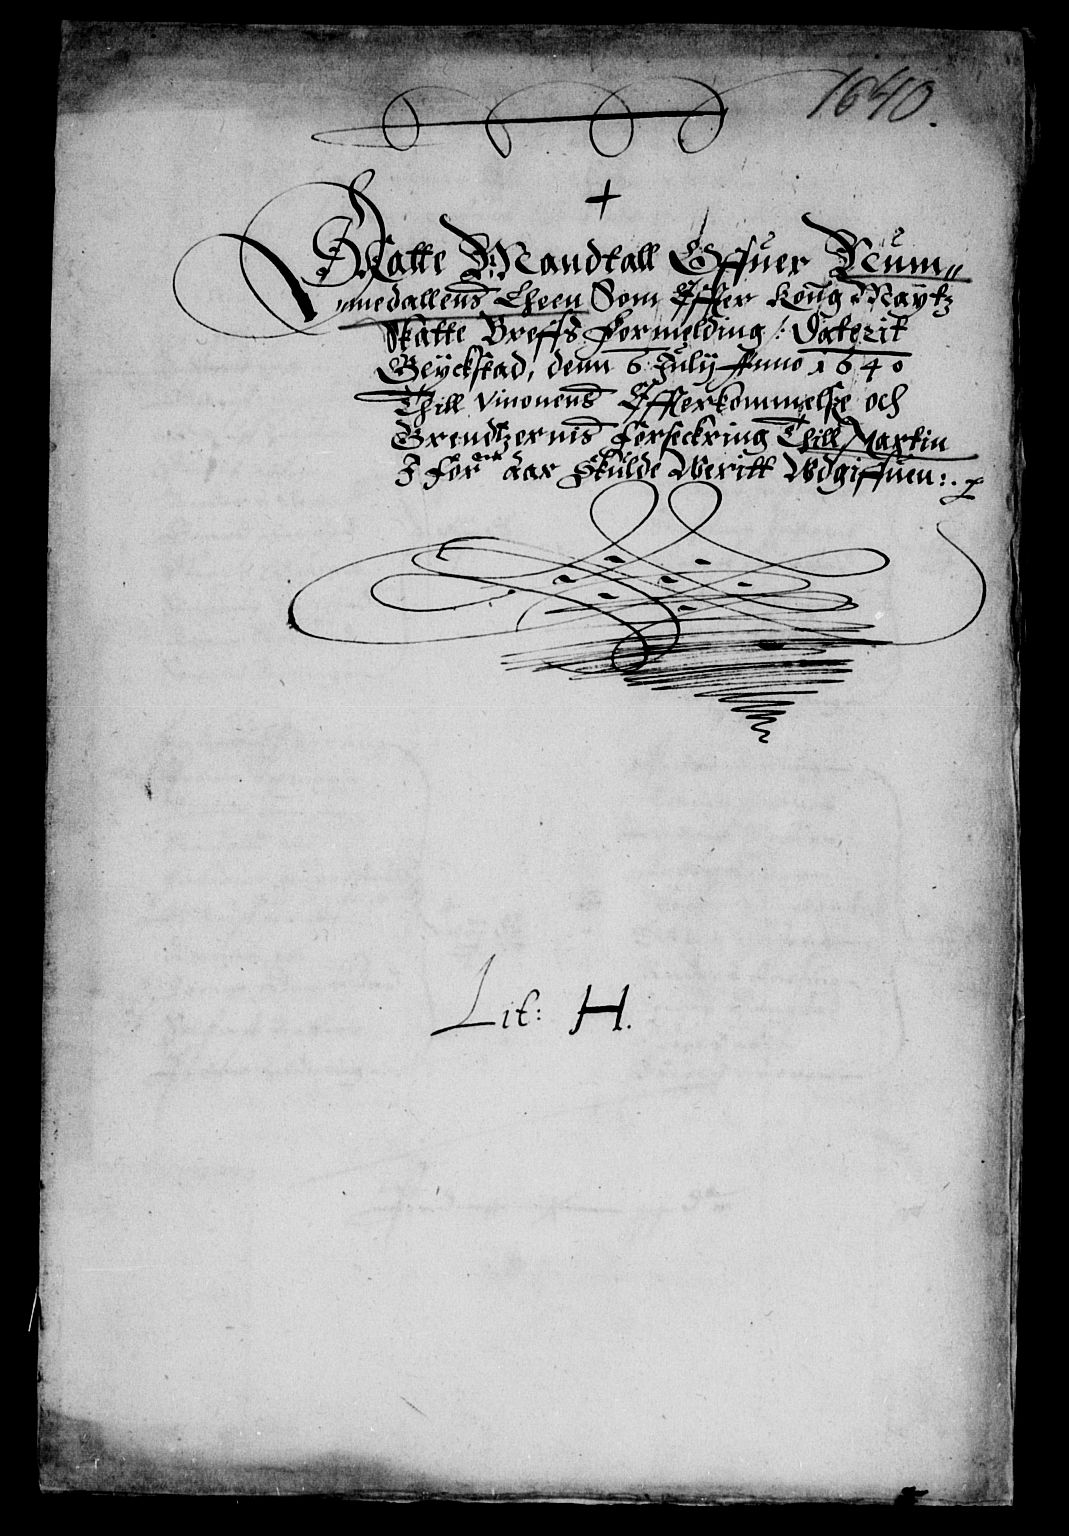 1640.
+
Skatte Mandtall Offuer Num„
„medallens Lheen Som Effter Kong Maÿtz
Skatte Breffs Formelding /: Daterit
Glÿckstad, denn 6 Julij Anno 1640
Thill Unionens Effterkommelße och
Grendtzernis forseckring Thill Martinj
I for aar Skulde Weritt Udgiffuen:.
Lit: H.